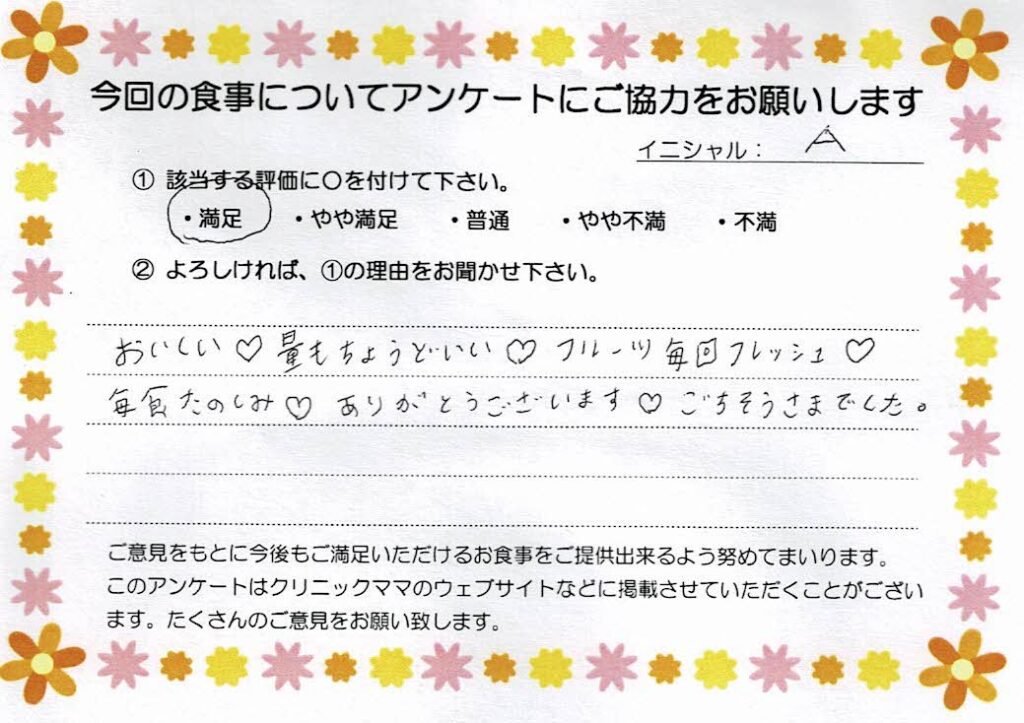 今回の食事についてアンケートにご協力をお願いします
イニシャル： A
① 該当する評価に○を付けて下さい。
・満足 ・やや満足 ・普通 ・やや不満 ・不満
② よろしければ、①の理由をお聞かせ下さい。
おいしい♡ 量もちょうどいい♡ フルーツ毎回フレッシュ♡
毎食たのしみ♡ ありがとうございます♡ ごちそうさまでした。
ご意見をもとに今後もご満足いただけるお食事をご提供出来るよう努めてまいります。
このアンケートはクリニックママのウェブサイトなどに掲載させていただくことがござい
ます。たくさんのご意見をお願い致します。